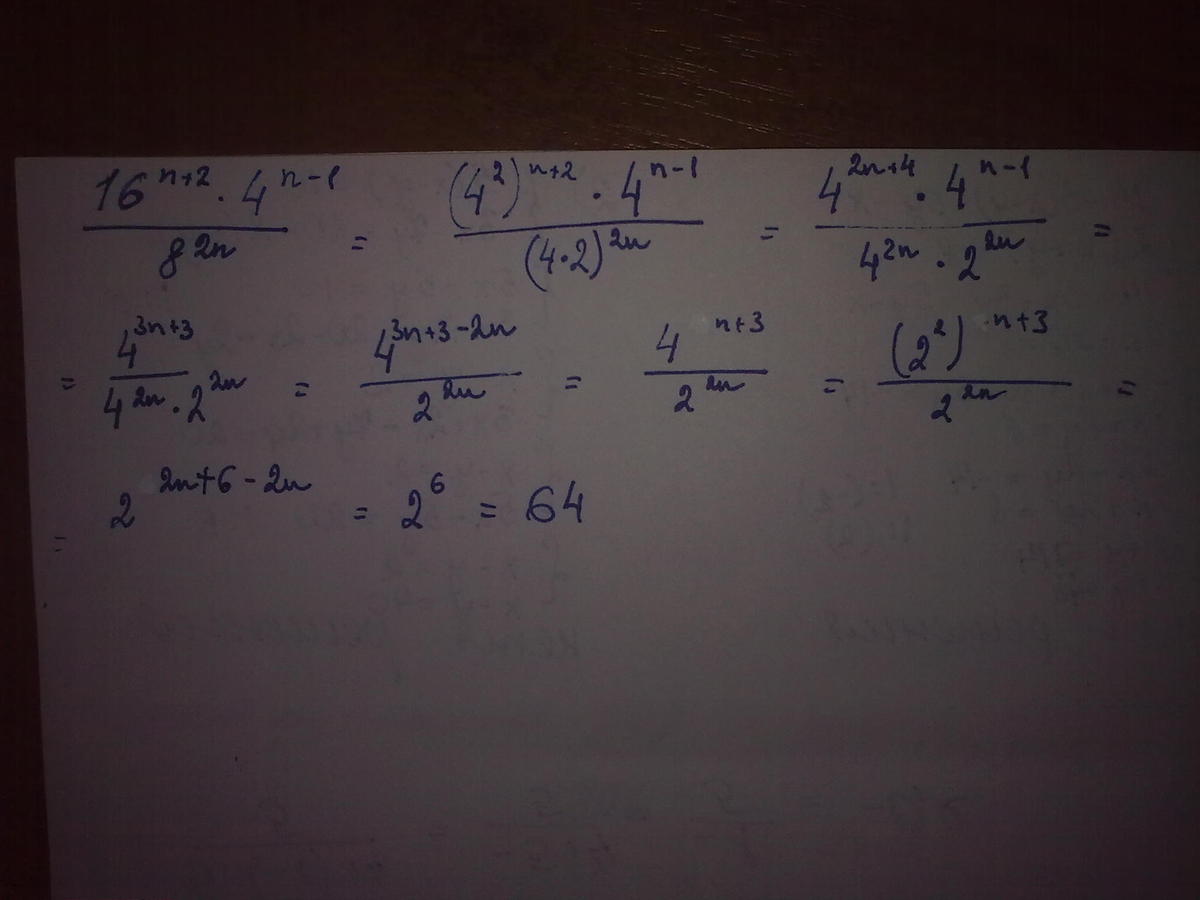 16^{n+2} · 4^{n-1} / 8^{2n} = (4^2)^{n+2} · 4^{n-1} / (4·2)^{2n} = 4^{2n+4} · 4^{n-1} / 4^{2n} · 2^{2n} =
= 4^{3n+3} / 4^{2n} · 2^{2n} = 4^{3n+3-2n} / 2^{2n} = 4^{n+3} / 2^{2n} = (2^2)^{n+3} / 2^{2n} =
= 2^{2n+6-2n} = 2^6 = 64